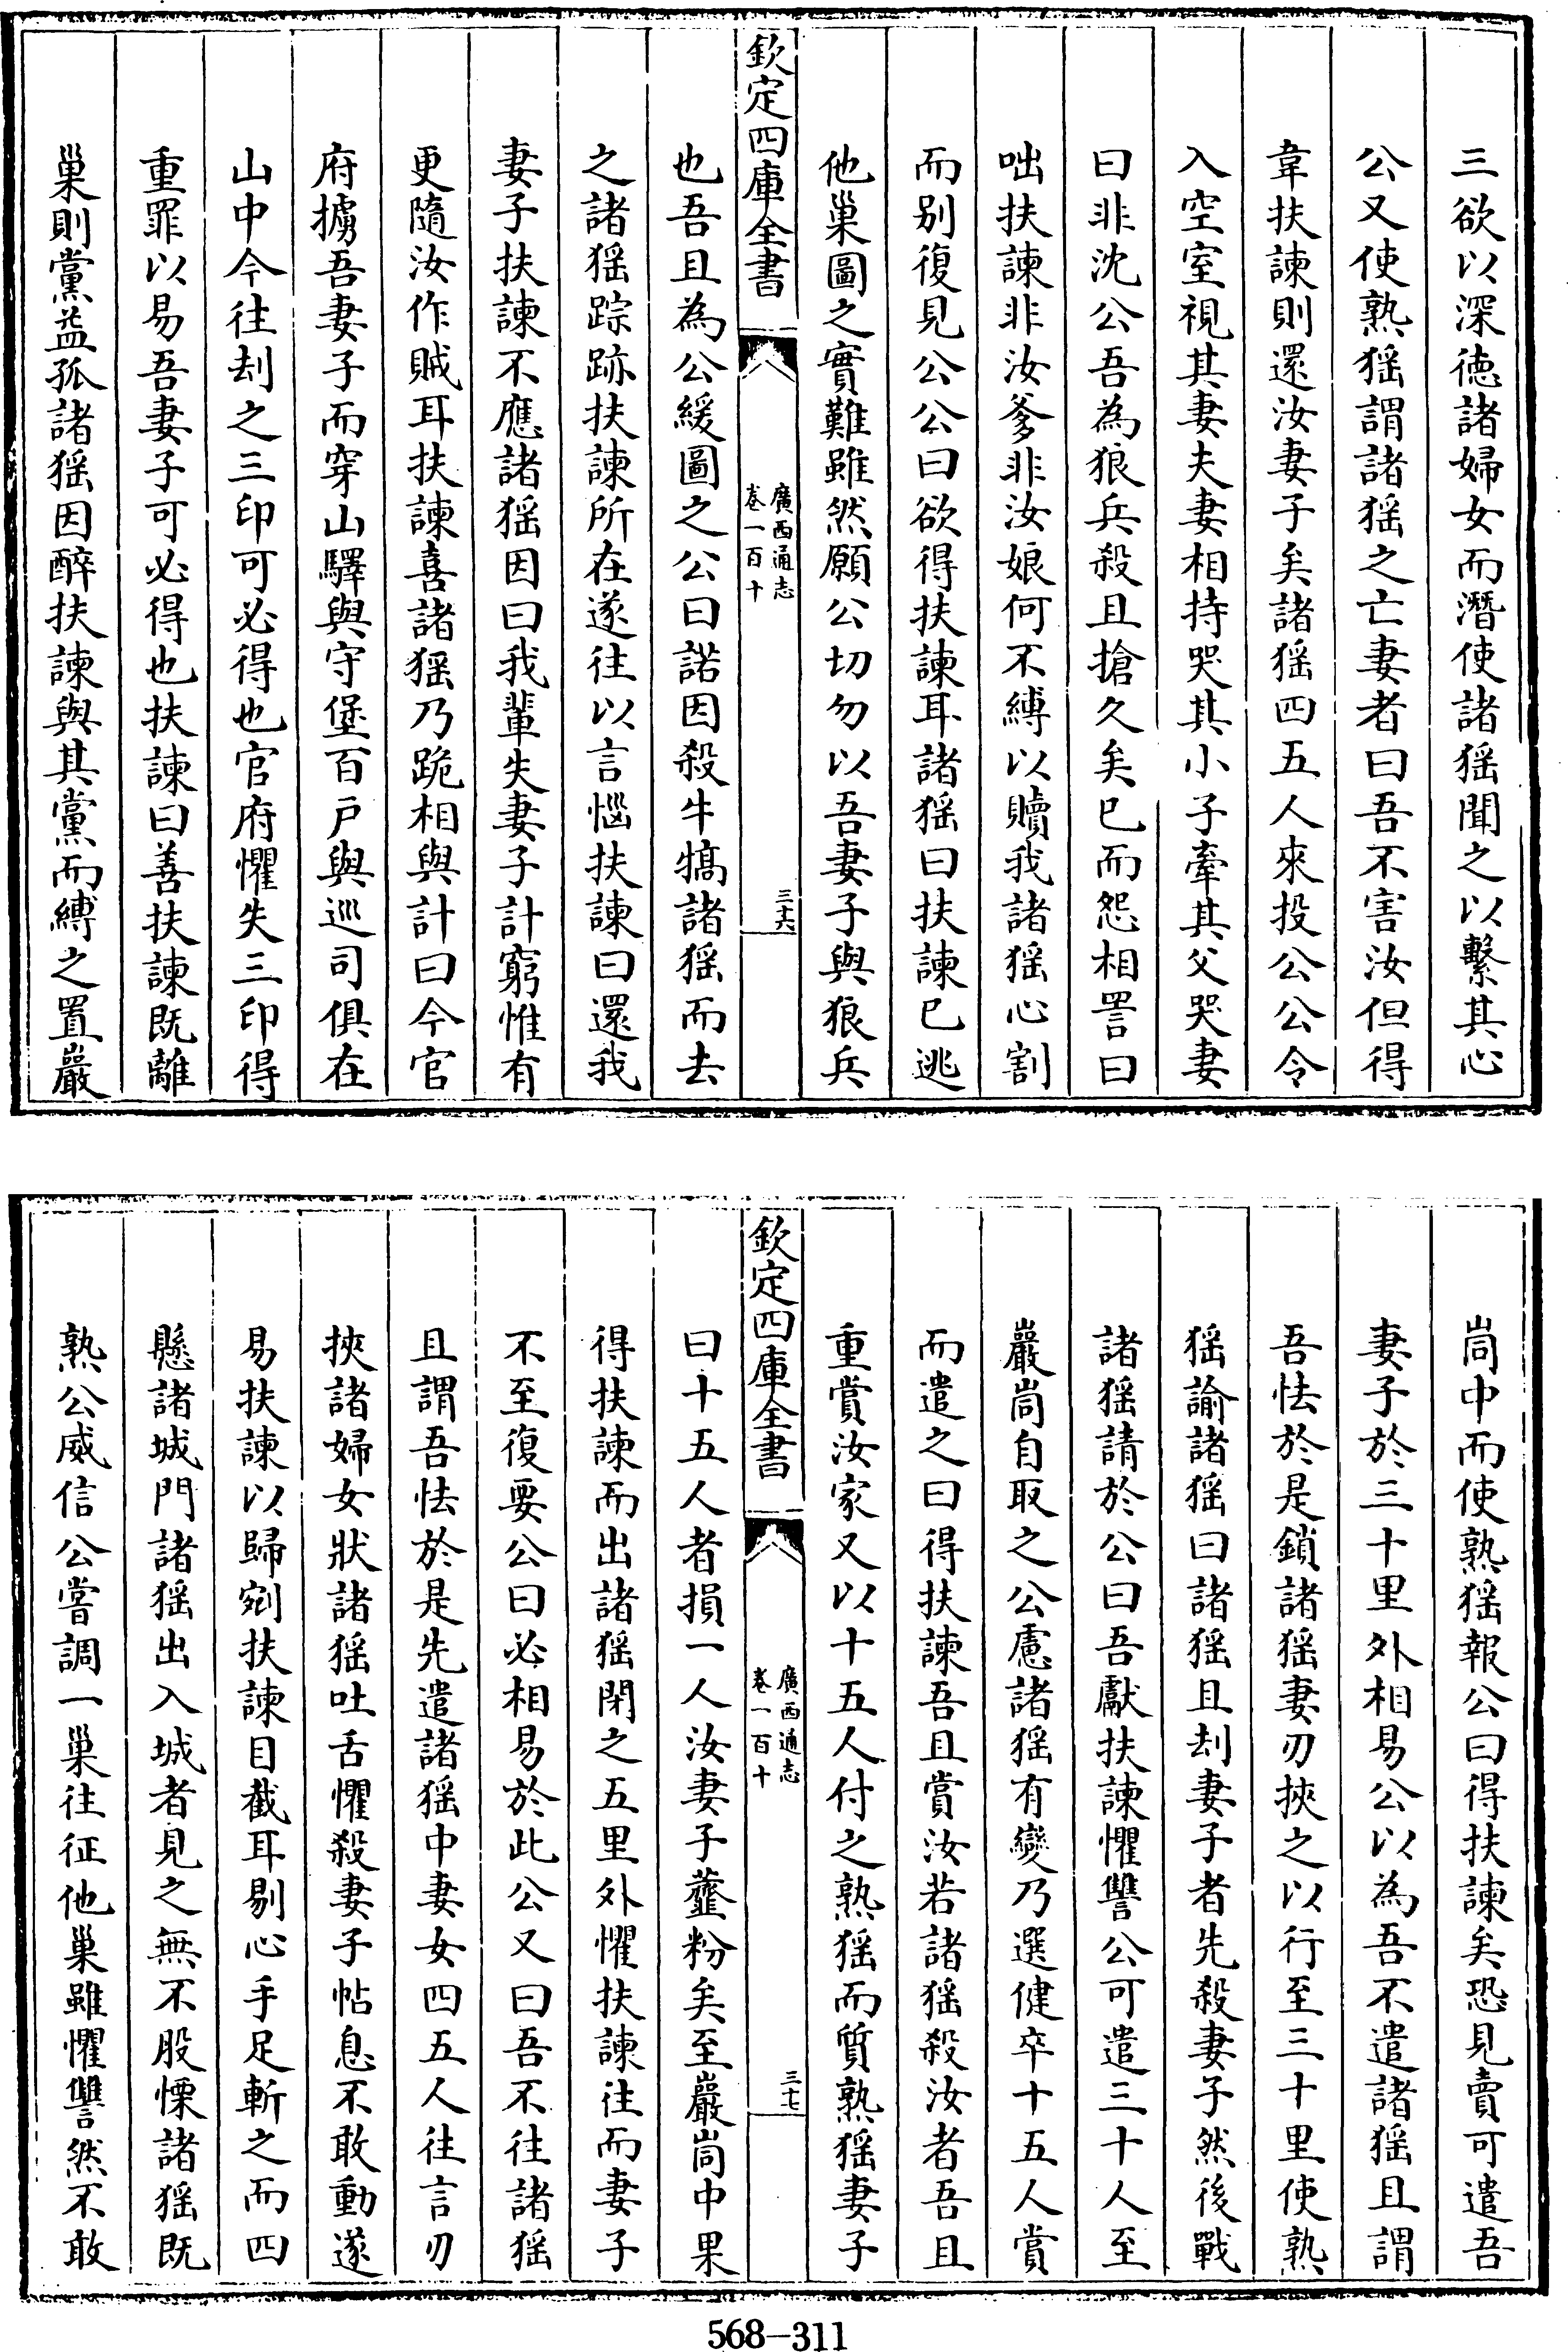 三欲以深徳諸婦女而潛使諸猺聞之以繫其心
公又使熟猺謂諸猺之亡妻者曰吾不害汝但得
韋扶諫則還汝妻子矣諸猺四五人來投公公令
入空室視其妻夫妻相持哭其小子牽其父哭妻
曰非沈公吾為狼兵殺且搶久矣已而怨相詈曰
咄扶諫非汝爹非汝娘何不縛以贖我諸猺心割
而别復見公公曰欲得扶諫耳諸猺曰扶諫已逃
他巢圖之實難雖然願公切勿以吾妻子與狼兵
欽定四庫全書
廣西通志
卷一百十
三十六
也吾且為公緩圖之公曰諾因殺牛犒諸猺而去
之諸猺踪跡扶諫所在遂往以言惱扶諫曰還我
妻子扶諫不應諸猺因曰我輩失妻子計窮惟有
更隨汝作賊耳扶諫喜諸猺乃跪相與計曰今官
府擄吾妻子而穿山驛與守堡百戸與巡司俱在
山中今往刦之三印可必得也官府懼失三印得
重罪以易吾妻子可必得也扶諫曰善扶諫既離
巢則黨益孤諸猺因醉扶諫與其黨而縛之置巖
峝中而使熟猺報公曰得扶諫矣恐見賣可遣吾
妻子於三十里外相易公以為吾不遣諸猺且謂
吾怯於是鎖諸猺妻刃挾之以行至三十里使熟
猺諭諸猺曰諸猺且刦妻子者先殺妻子然後戰
諸猺請於公曰吾獻扶諫懼讐公可遣三十人至
巖峝自取之公慮諸猺有變乃選健卒十五人賞
而遣之曰得扶諫吾且賞汝若諸猺殺汝者吾且
重賞汝家又以十五人付之熟猺而質熟猺妻子
欽定四庫全書
廣西通志
卷一百十
三十七
曰十五人者損一人汝妻子虀粉矣至巖峝中果
得扶諫而出諸猺閉之五里外懼扶諫往而妻子
不至復要公曰必相易於此公又曰吾不往諸猺
且謂吾怯於是先遣諸猺中妻女四五人往言刃
挾諸婦女狀諸猺吐舌懼殺妻子帖息不敢動遂
易扶諫以歸剜扶諫目截耳剔心手足斬之而四
懸諸城門諸猺出入城者見之無不股慄諸猺既
熟公威信公嘗調一巢往征他巢雖懼讐然不敢
568-311